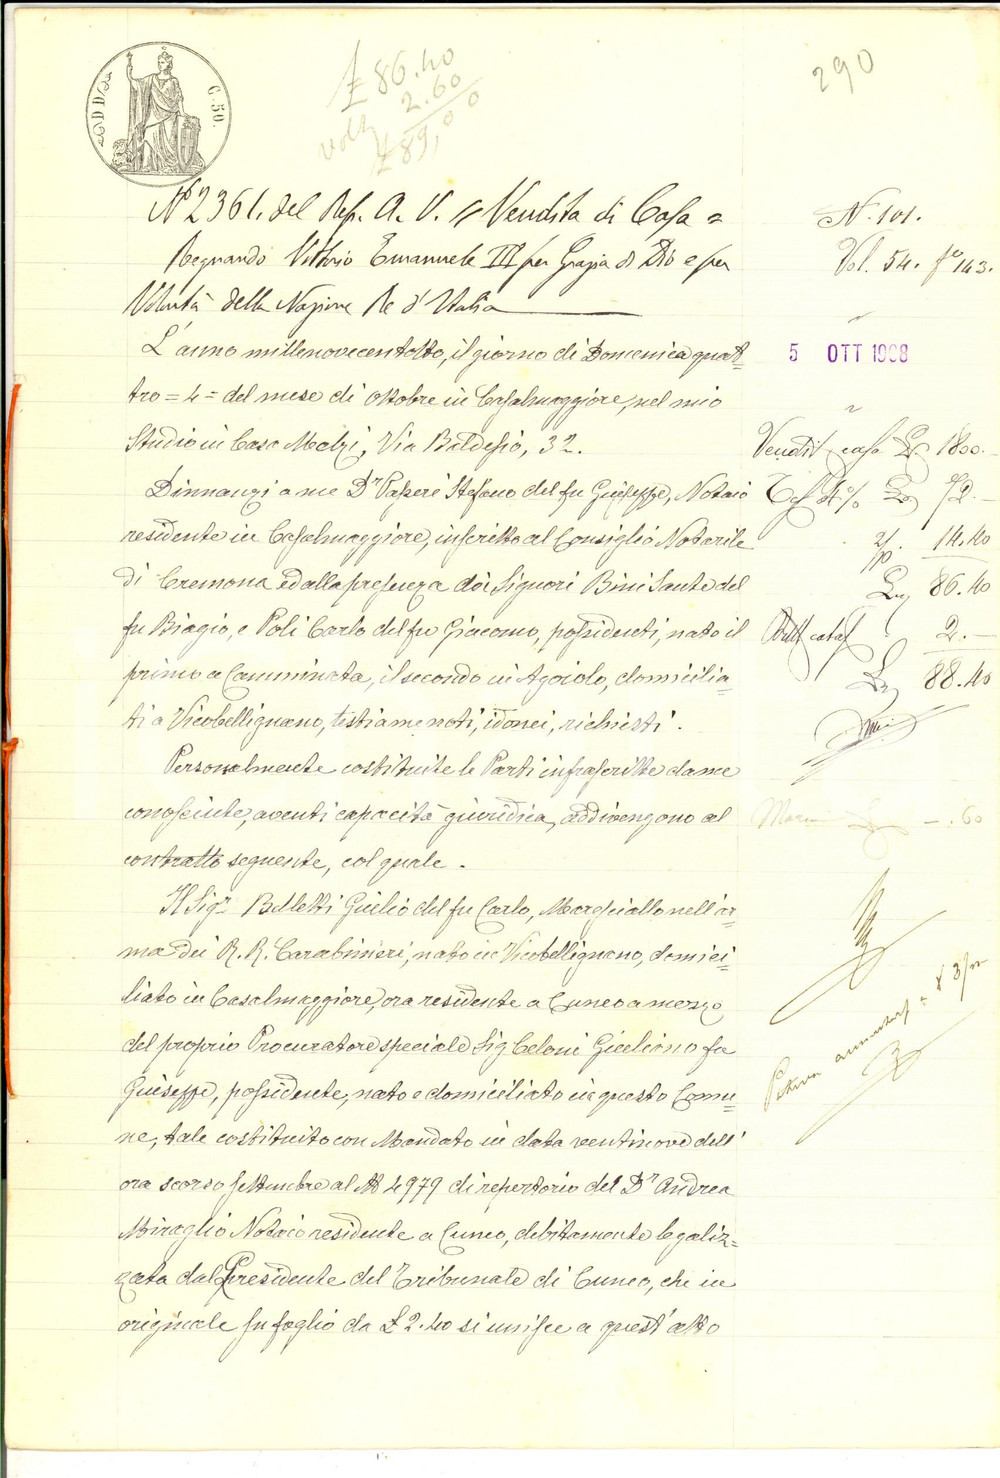 C. 50.
£ 86.40
2.60
£ 89,00
290
Nº 2361. del Rep. A. V. = Vendita di Casa =
Regnando Vittorio Emanuele III per Grazia di Dio e per
Volontà della Nazione Re d'Italia
L'anno millenovecentotto, il giorno di Domenica quat-
tro = 4 = del mese di ottobre in Casalmaggiore, nel mio
Studio in Casa Molzi, Via Baldesio, 32.
Dinnanzi a me Dr Passeri Stefano del fu Giuseppe, Notaio
residente in Casalmaggiore, inscritto al Consiglio Notarile
di Cremona ed alla presenza dei Signori Bini Sante del
fu Biagio, e Poli Carlo del fu Giacomo, possidenti, nato il
primo a Camminata, il secondo in Agoiolo, domicilia-
ti a Vicobellignano, testi a me noti, idonei, richiesti.
Personalmente costituite le Parti infrascritte da me
conosciute, aventi capacità giuridica, addivengono al
contratto seguente, col quale.
Il Sigr Belletti Giulio del fu Carlo, Maresciallo nell'ar-
ma dei R. R. Carabinieri, nato in Vicobellignano, domici-
liato in Casalmaggiore, ora residente a Cuneo a mezzo
del proprio Procuratore speciale Sig Celoni Giuliono fu
Giuseppe, possidente, nato e domiciliato in questo Comu-
ne, tale costituito con Mandato in data ventinove dell'
ora scorso Settembre al Nº 4979 di repertorio del Dr Andrea
Miraglio Notaio residente a Cuneo, debitamente legaliz-
zata dal Presidente del Tribunale di Cuneo, che in
originale su foglio da £ 2.40 si unisce a quest'atto
N. 101.
Vol. 54. fo 143.
5 OTT 1908
Vendit casa L 1800.-
Tas 4% L 72.-
14.40
L 86.40
catas 2.-
L 88.40
-.60